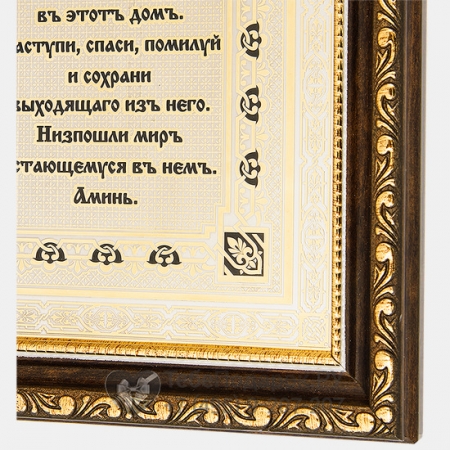 въ этотъ домъ.
аступи, спаси, помилуй
и сохрани
выходящаго изъ него.
Низпошли миръ
стающемуся въ немъ.
Аминь.